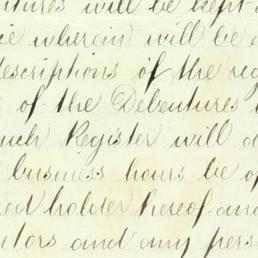 ntures will be kept a
ce wherein will be
descriptions of the reg
s of the Debentures
uch Register will
business hours be o
ed holder hereof and
utors and any pers